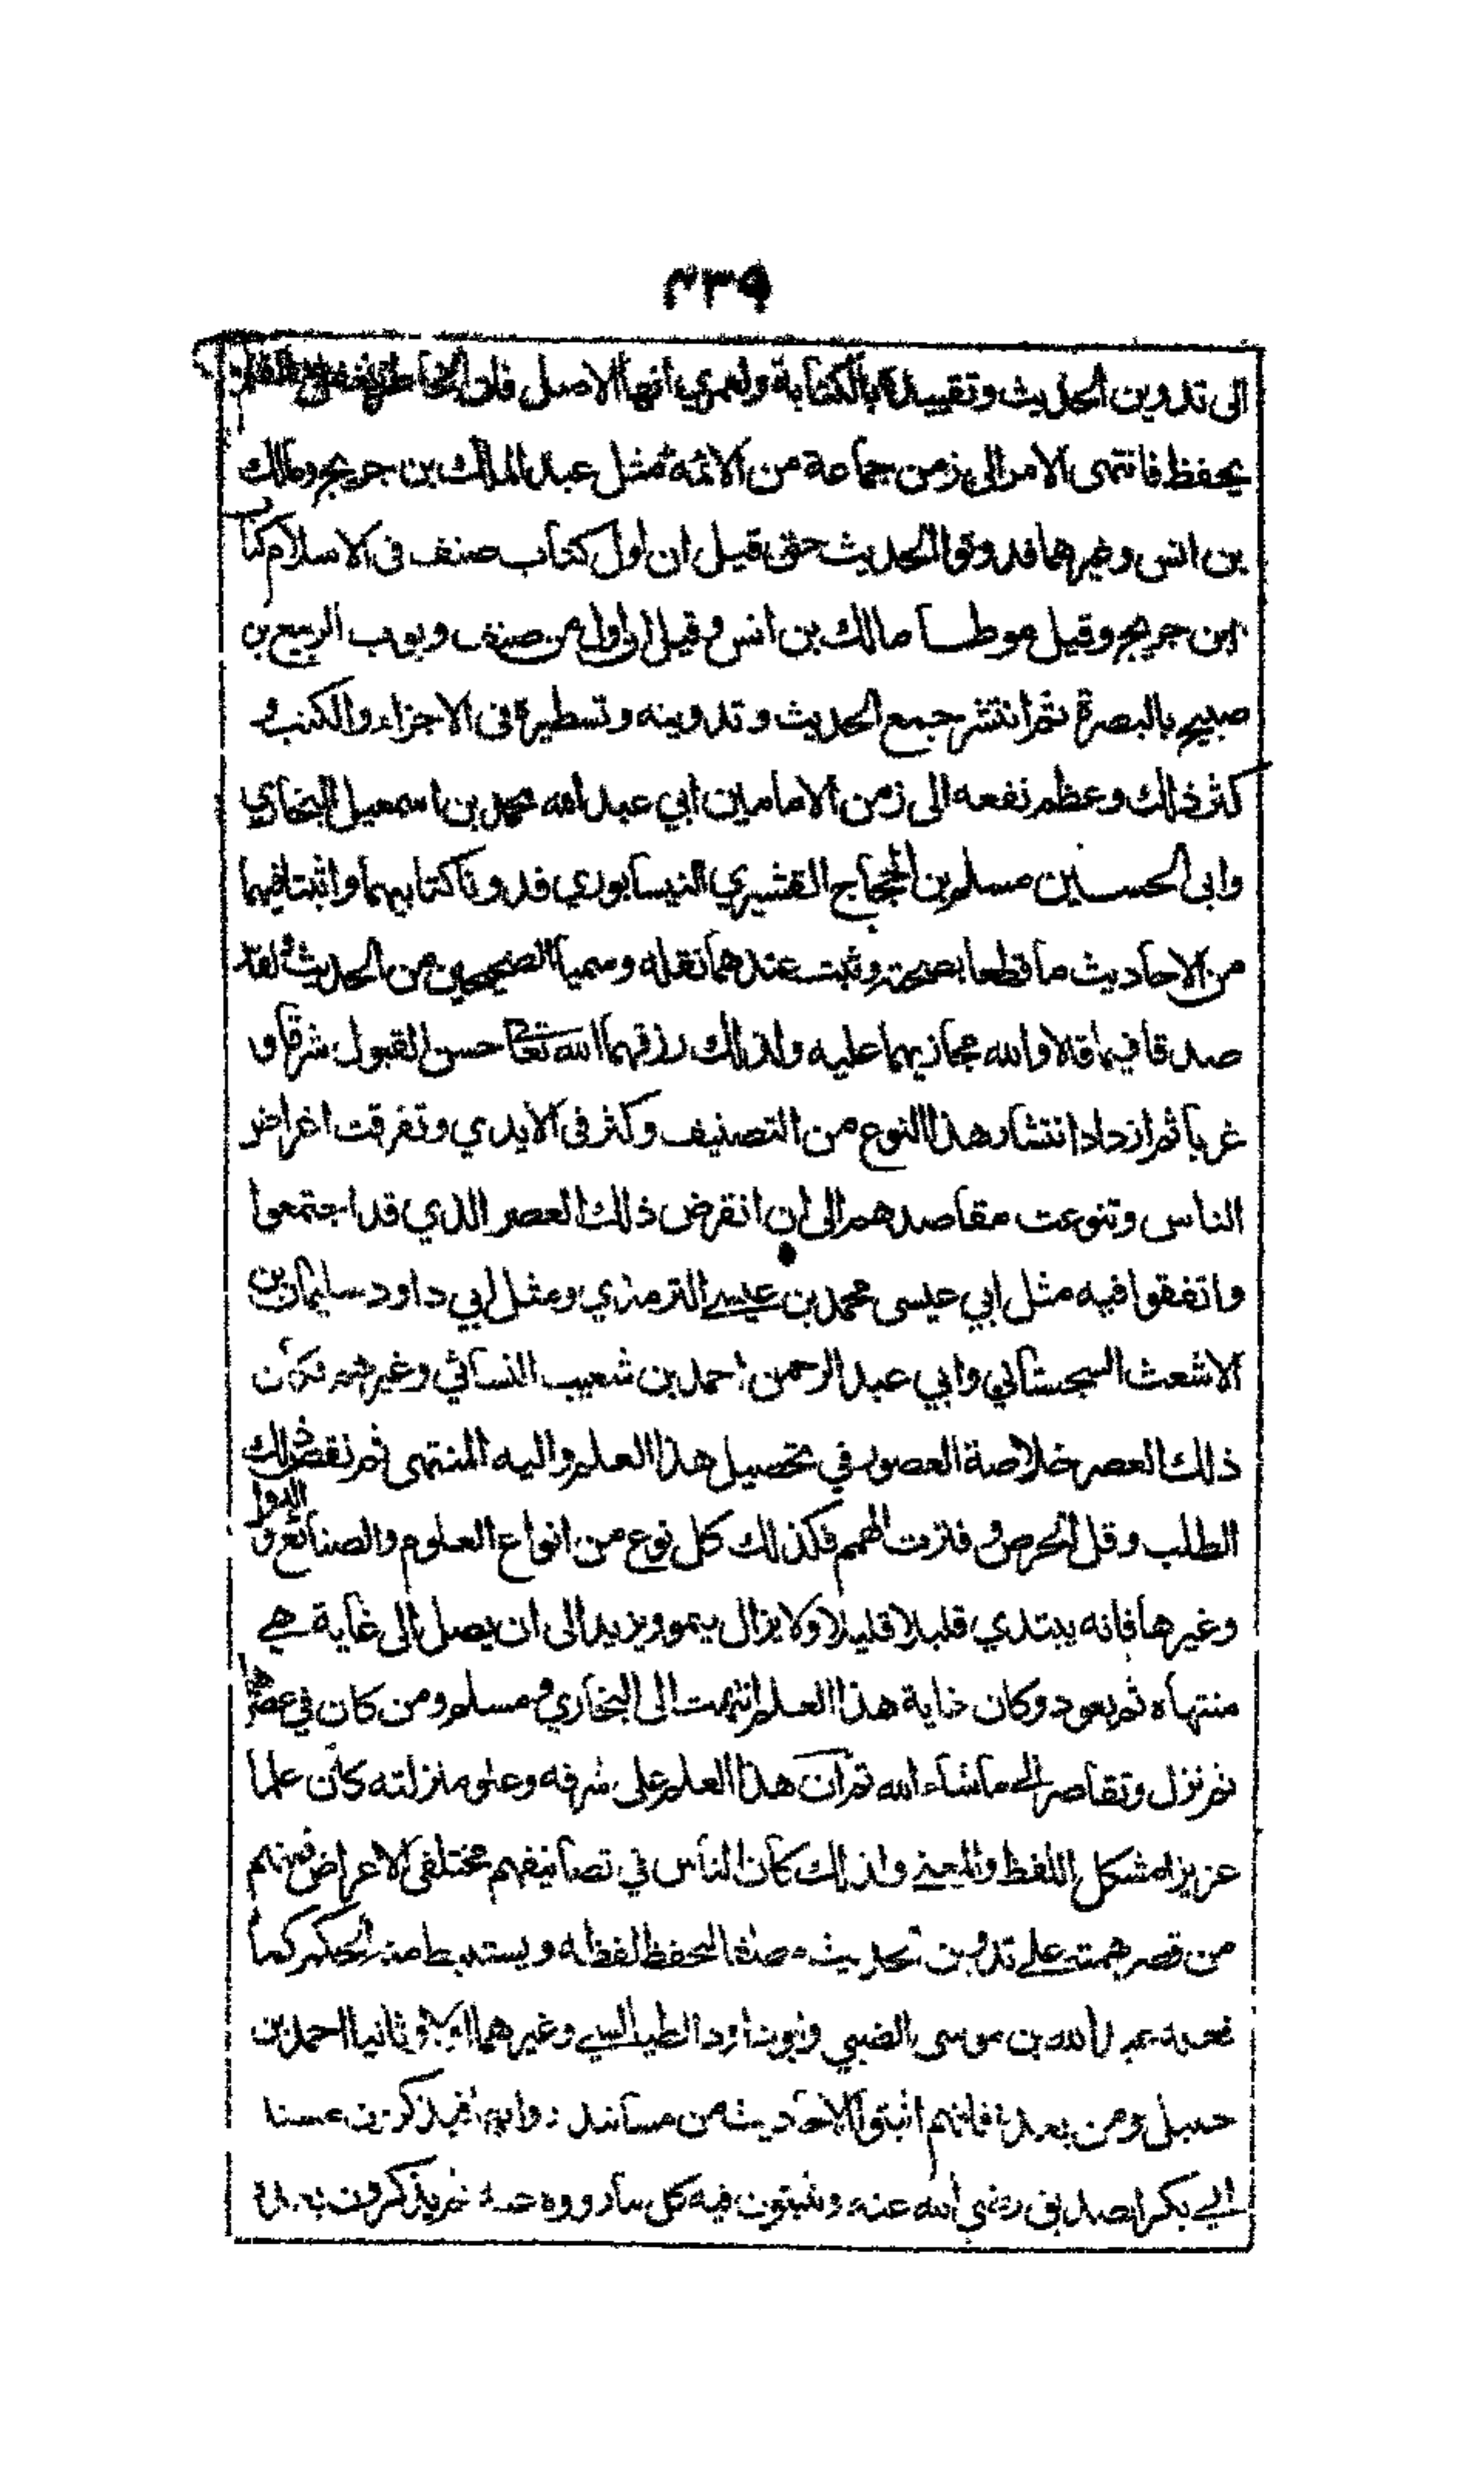 ٤٣٩
الى تدوين الحديث وتقييده بالكتابة ولعمري انها الاصل فان الخاطر يغفل والقلم
يحفظ فانتهى الامر الى زمن جماعة من الائمة مثل عبد الملك بن جريج ومالك
بن انس وغيرهما فدونوا الحديث حتى قيل ان اول كتاب صنف في الاسلام كتاب
ابن جريج وقيل موطا مالك بن انس وقيل ان اول من صنف وبوب الربيع بن
صبيح بالبصرة ثم انتشر جمع الحديث وتدوينه وتسطيره في الاجزاء والكتب و
كثر ذلك وعظم نفعه الى زمن الامامين ابي عبد الله محمد بن اسمعيل البخاري
وابى الحسين مسلم بن الحجاج القشيري النيسابوري فدونا كتابيهما واثبتا فيهما
من الاحاديث ما قطعا بصحته وثبت عندهما نقله وسميا الصحيحين من الحديث ولقد
صدقا فيما قالا والله مجازيهما عليه ولذلك رزقهما الله تعالى حسن القبول شرقا و
غربا ثم ازداد انتشار هذا النوع من التصنيف وكثر في الايدي وتفرقت اغراض
الناس وتنوعت مقاصدهم الى ان انقرض ذلك العصر الذي قد اجتمعوا
واتفقوا فيه مثل ابي عيسى محمد بن عيسى الترمذي ومثل ابي داود سليمان بن
الاشعث السجستاني وابي عبد الرحمن احمد بن شعيب النسائي وغيرهم فكان
ذلك العصر خلاصة العصور في تحصيل هذا العلم واليه المنتهى ثم نقص ذلك
الطلب وقل الحرص وفترت الهمم فكذلك كل نوع من انواع العلوم والصنائع والدول
وغيرها فانه يبتدي قليلا قليلا ولا يزال ينمو ويزيد الى ان يصل الى غاية هي
منتهاه ثم يعود وكان غاية هذا العلم انتهت الى البخاري ومسلم ومن كان في عصرهما
ثم نزل وتقاصر الى ما شاء الله ثم ان هذا العلم على شرفه وعلو منزلته كان علما
عزيزا مشكل اللفظ والمعنى ولذلك كان الناس في تصانيفهم مختلفي الاغراض فمنهم
من قصر همته على تدوين الحديث مطلقا لحفظ لفظه ويستنبط منه الحكم كما
فعله عبد الله بن موسى الضبي وابو داود الطيالسي وغيرهما اولا وثانيا احمد بن
حنبل ومن بعده فانهم اثبتوا الاحاديث من مسانيد رواتها فيذكرون مسند
ابي بكر الصديق رضي الله عنه ويثبتون فيه كل ما رووه عنه ثم يذكرون بعده